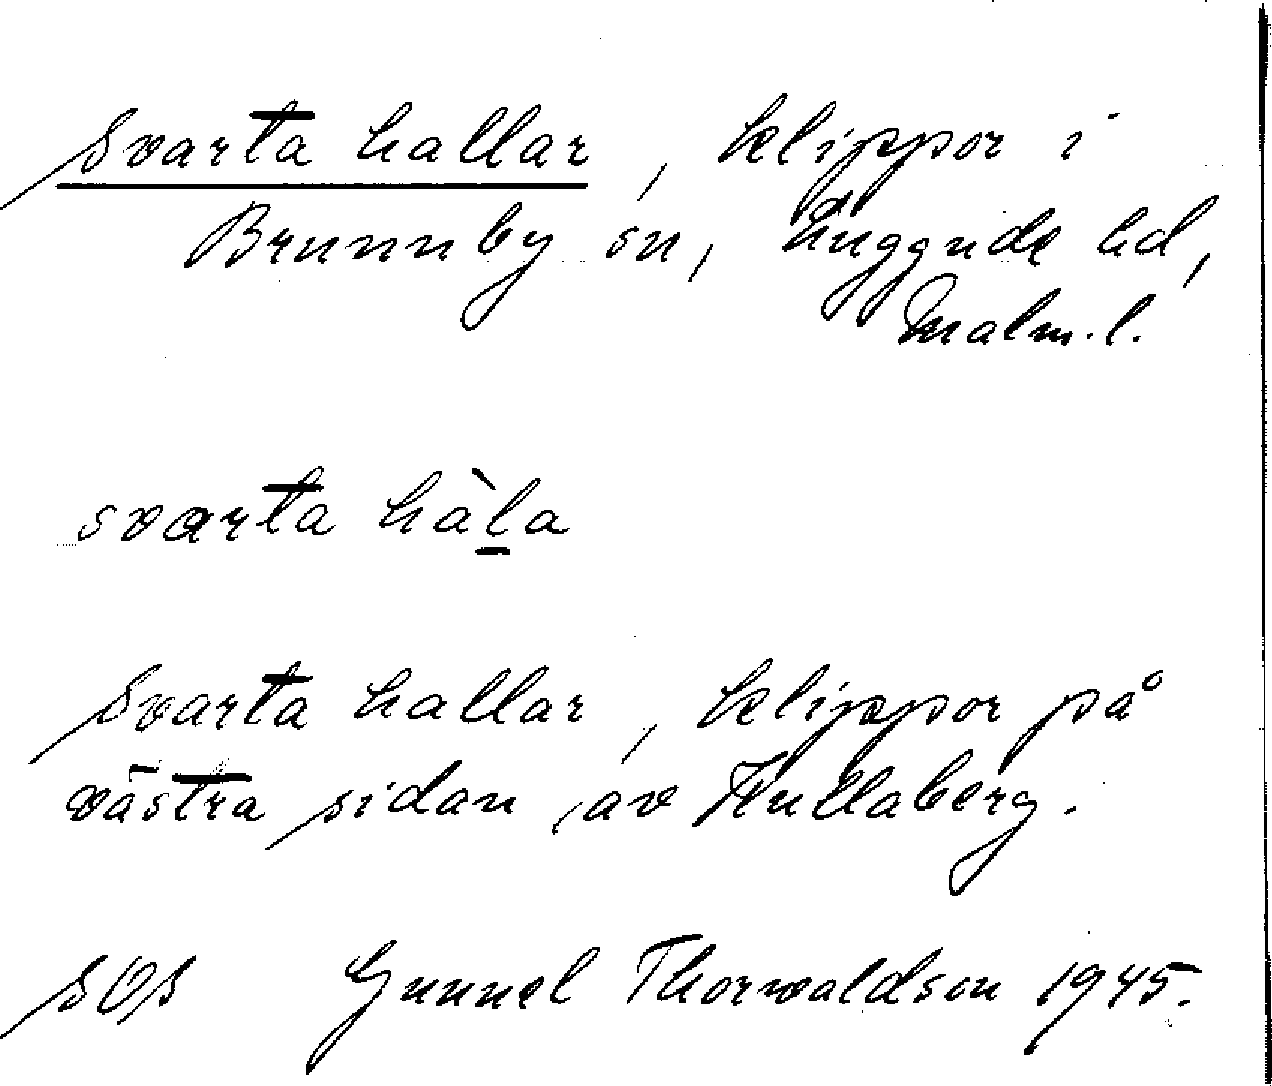 Svarta hallar, klippor i
Brunnby sn, Luggude hd,
Malm.l.
svarta hàl̲a
Svarta hallar, klippor på
västra sidan av Kullaberg.
SOS Gunnel Thorwaldson 1945.